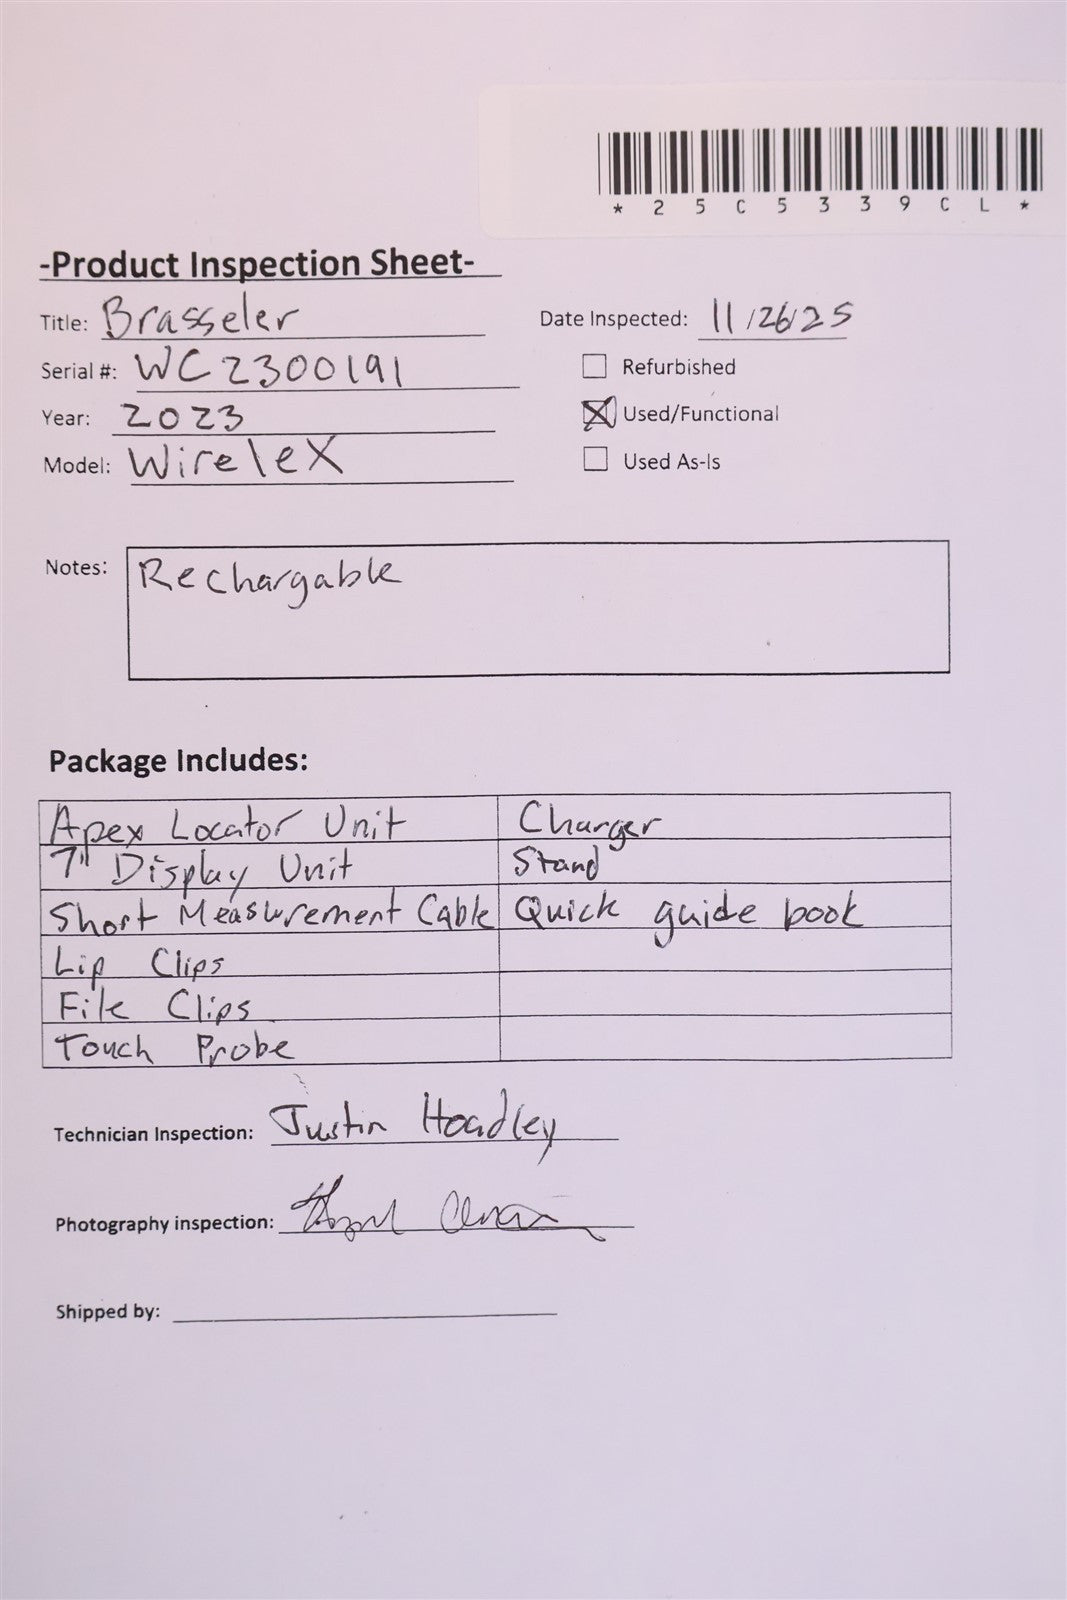 *25C5339CL*
-Product Inspection Sheet-
Title: Brasseler
Date Inspected: 11/26/25
Serial #: WC2300191
Refurbished
Year: 2023
Used/Functional
Model: WireleX
Used As-Is
Notes: Rechargable
Package Includes:
Apex Locator Unit Charger
7" Display Unit Stand
Short Measurement Cable Quick guide book
Lip Clips
File Clips
Touch Probe
Technician Inspection: Justin Hoadley
Photography inspection:
Shipped by: